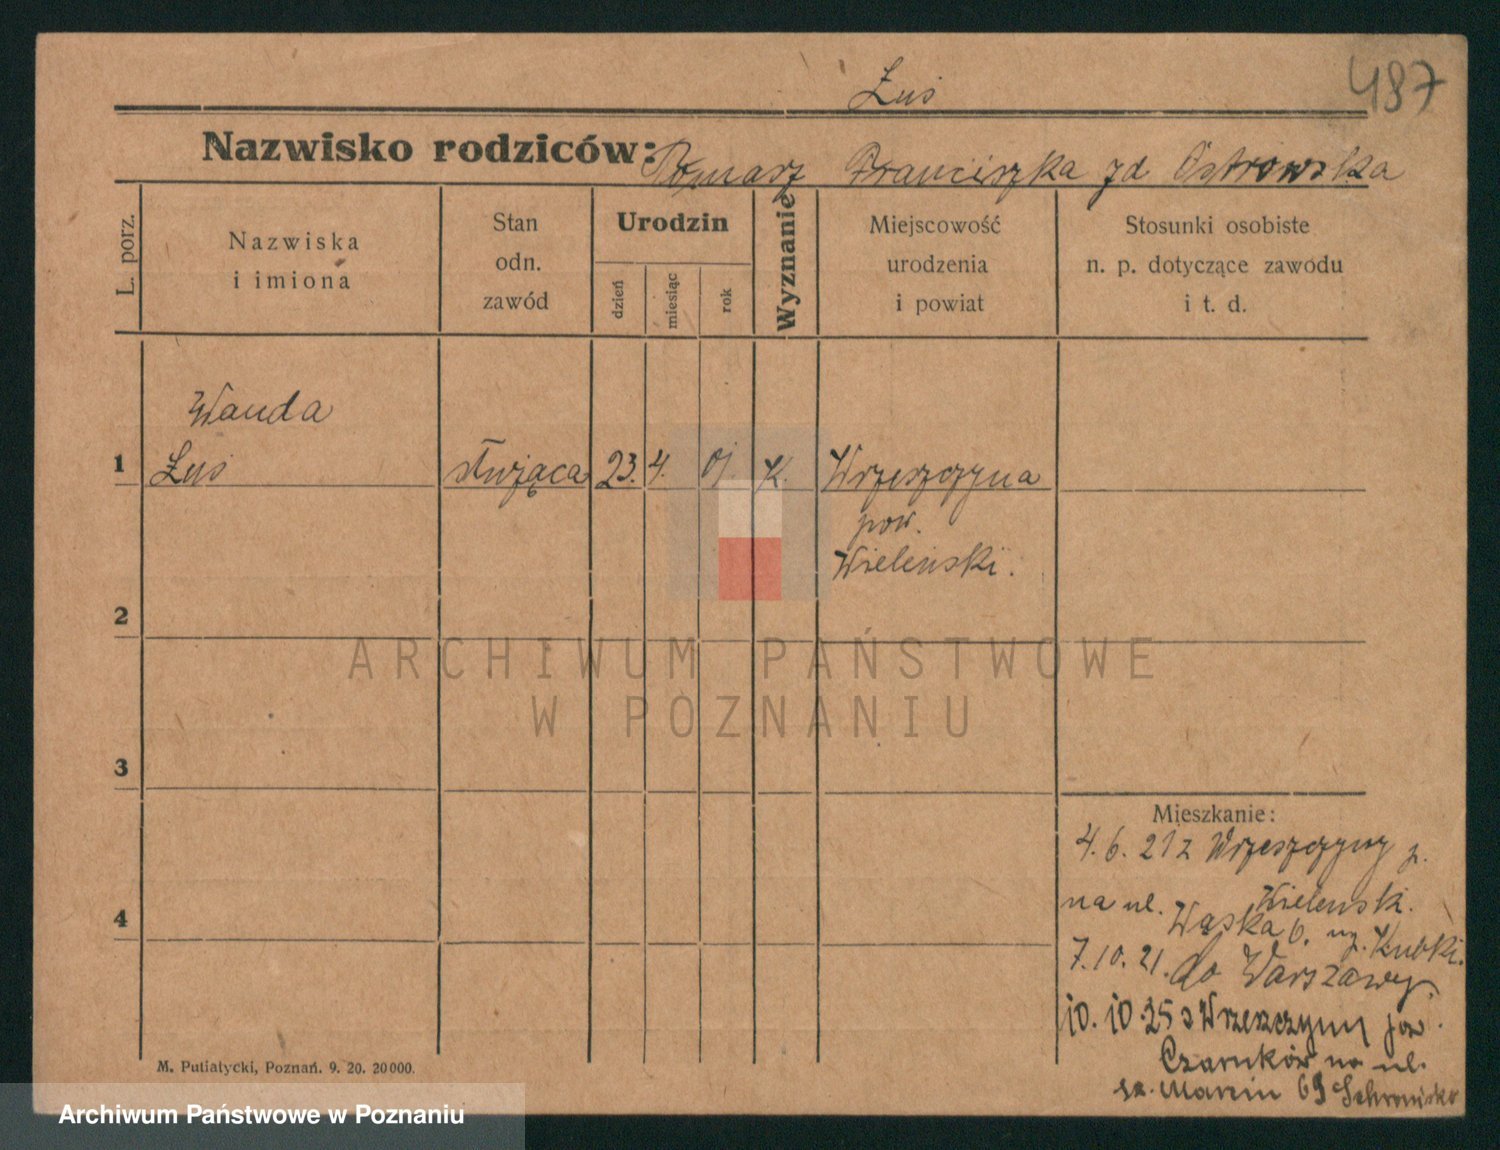 487
Żuś
Nazwisko rodziców: Tomasz Franciszka zd Ostrowska
L. porz.
Nazwiska
i imiona
Stan
odn.
zawód
Urodzin
dzień
miesiąc
rok
Wyznanie
Miejscowość
urodzenia
i powiat
Stosunki osobiste
n. p. dotyczące zawodu
i t. d.
Wanda
1 Żuś służąca 23. 4. 01 K. Wrzeszczyna
pow.
Wieleński.
2
ARCHIWUM PAŃSTWOWE
W POZNANIU
3
Mieszkanie:
4. 6. 21 z Wrzeszczyny p.
Wielensk.
4
na ul. Wąska 6. Kubki.
7. 10. 21. do Warszawy.
10. 10. 25 z Wrzeszczyny pow.
Czarnków na ul.
św. Marcin 69 Schronisko
M. Putiatycki, Poznań. 9. 20. 20000.
Archiwum Państwowe w Poznaniu